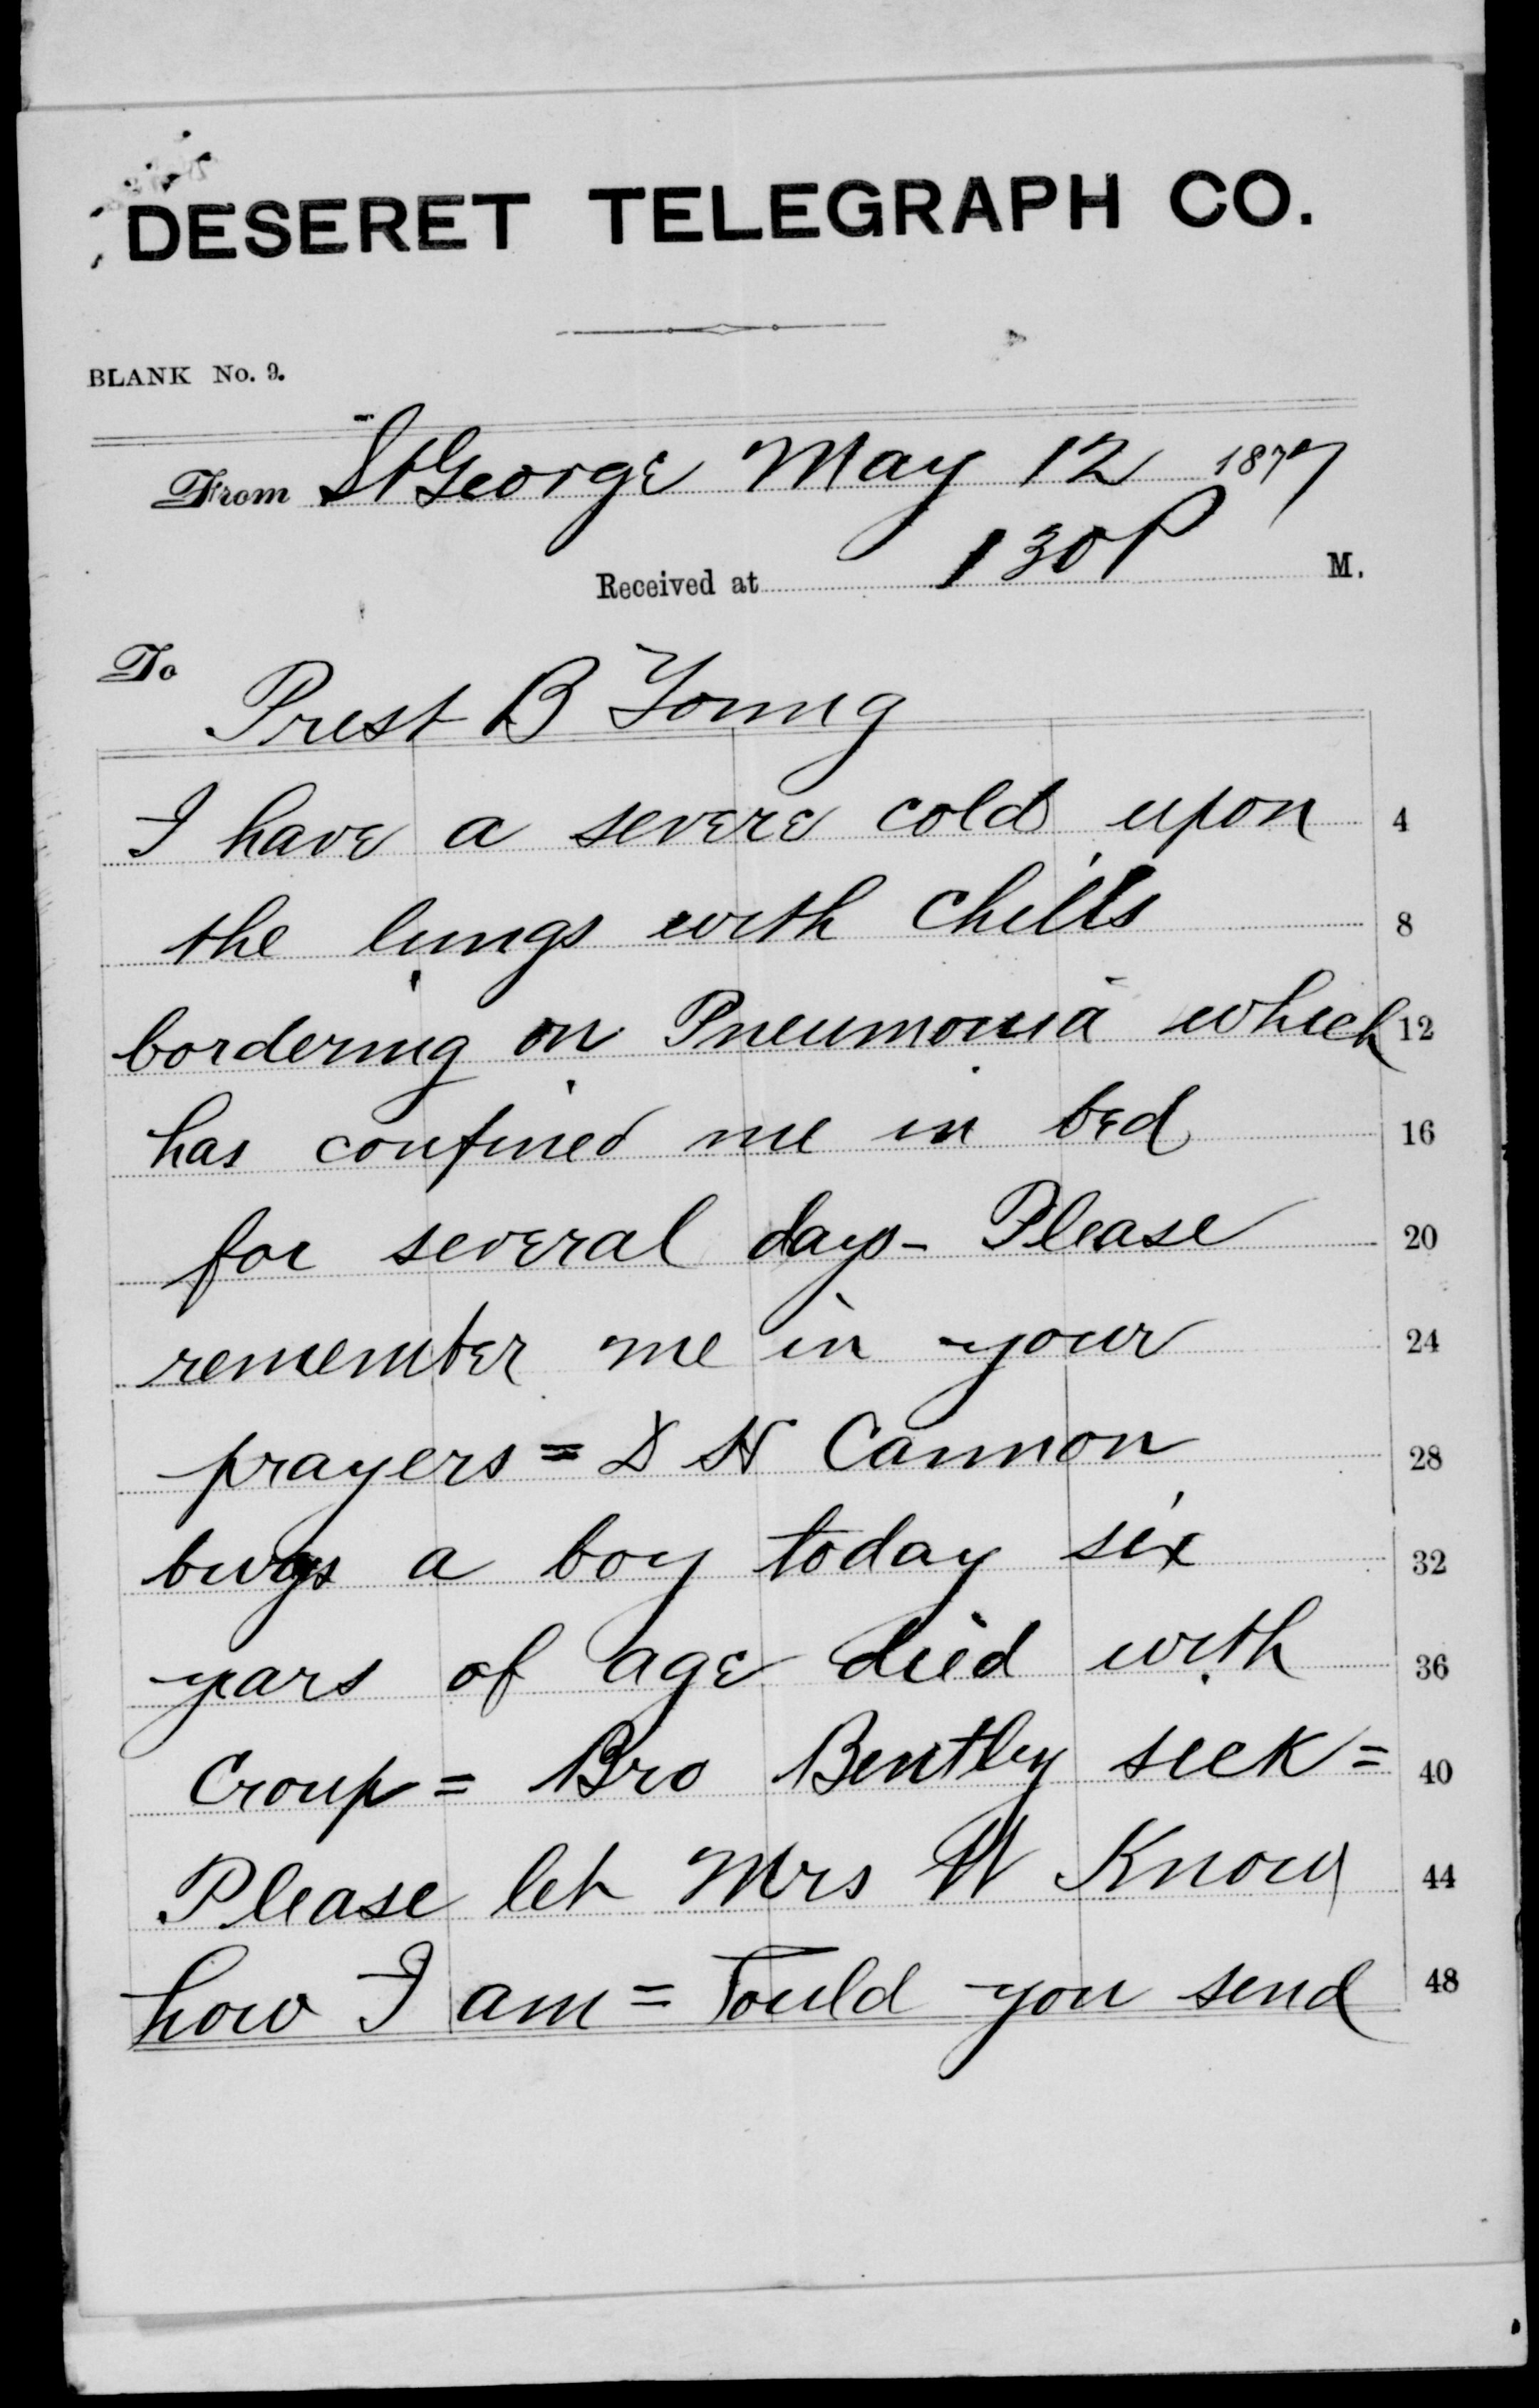 DESERET TELEGRAPH CO.
BLANK No. 9.
From St George May 12 1877
Received at 130 P M.
To
Prest B Young
I have a severe cold upon 4
the lungs with chills 8
bordering on Pneumonia which 12
has confined me in bed 16
for several days - Please 20
remember me in your 24
prayers = D H Cannon 28
a boy today six 32
years of age died with 36
Croup = Bro Bentley sick = 40
Please let Mrs W Know 44
how I am = you send 48